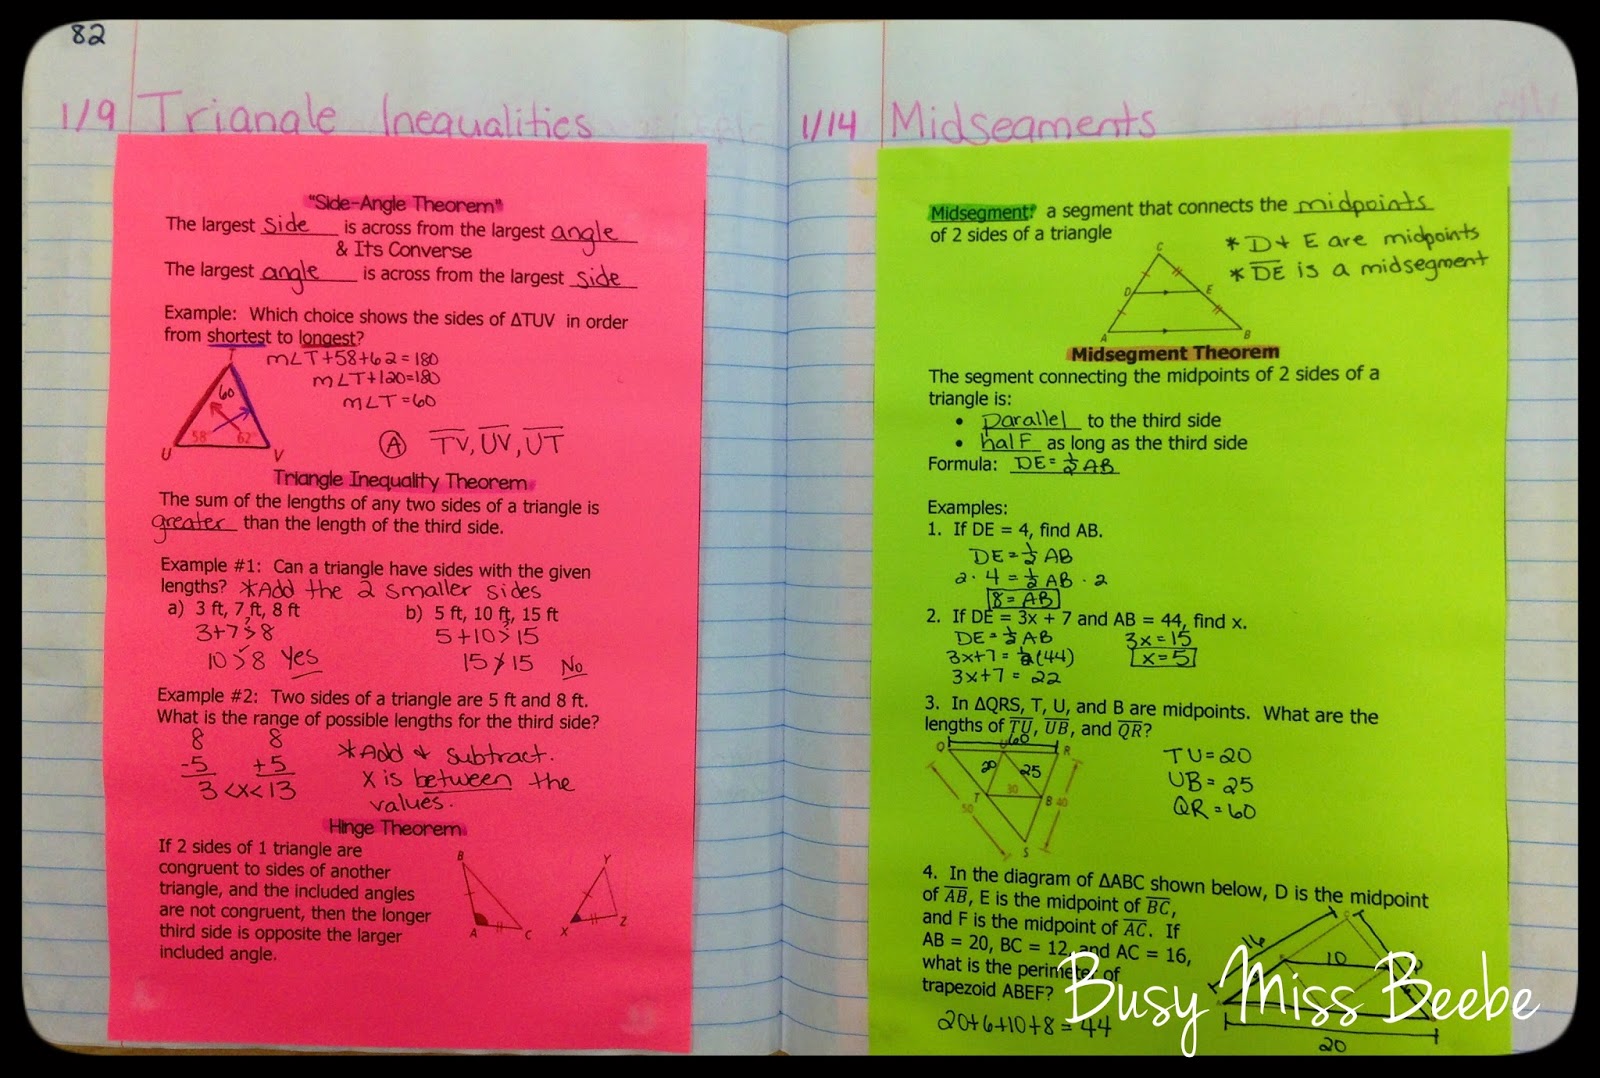 82
1/9 Triangle Inequalities
"Side-Angle Theorem"
The largest side is across from the largest angle
& Its Converse
The largest angle is across from the largest side
Example: Which choice shows the sides of ΔTUV in order
from shortest to longest?
T
m∠T+58+62=180
m∠T+120=180
m∠T=60
60
58° 62°
U V
Ⓐ T̅V̅, U̅V̅, U̅T̅
Triangle Inequality Theorem
The sum of the lengths of any two sides of a triangle is
greater than the length of the third side.
Example #1: Can a triangle have sides with the given
lengths? *Add the 2 smaller sides
a) 3 ft, 7 ft, 8 ft b) 5 ft, 10 ft, 15 ft
3+7 >? 8 5+10 >? 15
10 > 8 Yes 15 ≯ 15 No
Example #2: Two sides of a triangle are 5 ft and 8 ft.
What is the range of possible lengths for the third side?
8 8
-5 +5
3 <x< 13
*Add & subtract.
X is between the
values.
Hinge Theorem
If 2 sides of 1 triangle are
congruent to sides of another
triangle, and the included angles
are not congruent, then the longer
third side is opposite the larger
included angle.
B Y
A C X Z
1/14 Midsegments
Midsegment: a segment that connects the midpoints
of 2 sides of a triangle
* D & E are midpoints
* D̅E̅ is a midsegment
C
D E
A B
Midsegment Theorem
The segment connecting the midpoints of 2 sides of a
triangle is:
• parallel to the third side
• half as long as the third side
Formula: DE = ½ AB
Examples:
1. If DE = 4, find AB.
DE = ½ AB
2 · 4 = ½ AB · 2
8 = AB
2. If DE = 3x + 7 and AB = 44, find x.
DE = ½ AB 3x = 15
3x+7 = ½(44) x = 5
3x+7 = 22
3. In ΔQRS, T, U, and B are midpoints. What are the
lengths of T̅U̅, U̅B̅, and Q̅R̅?
60
Q U R
20 25
T 30 B
50 40
S
TU = 20
UB = 25
QR = 60
4. In the diagram of ΔABC shown below, D is the midpoint
of A̅B̅, E is the midpoint of B̅C̅,
and F is the midpoint of A̅C̅. If
AB = 20, BC = 12, and AC = 16,
what is the perimeter of
trapezoid ABEF?
20+6+10+8 = 44
16
10
20
Busy Miss Beebe